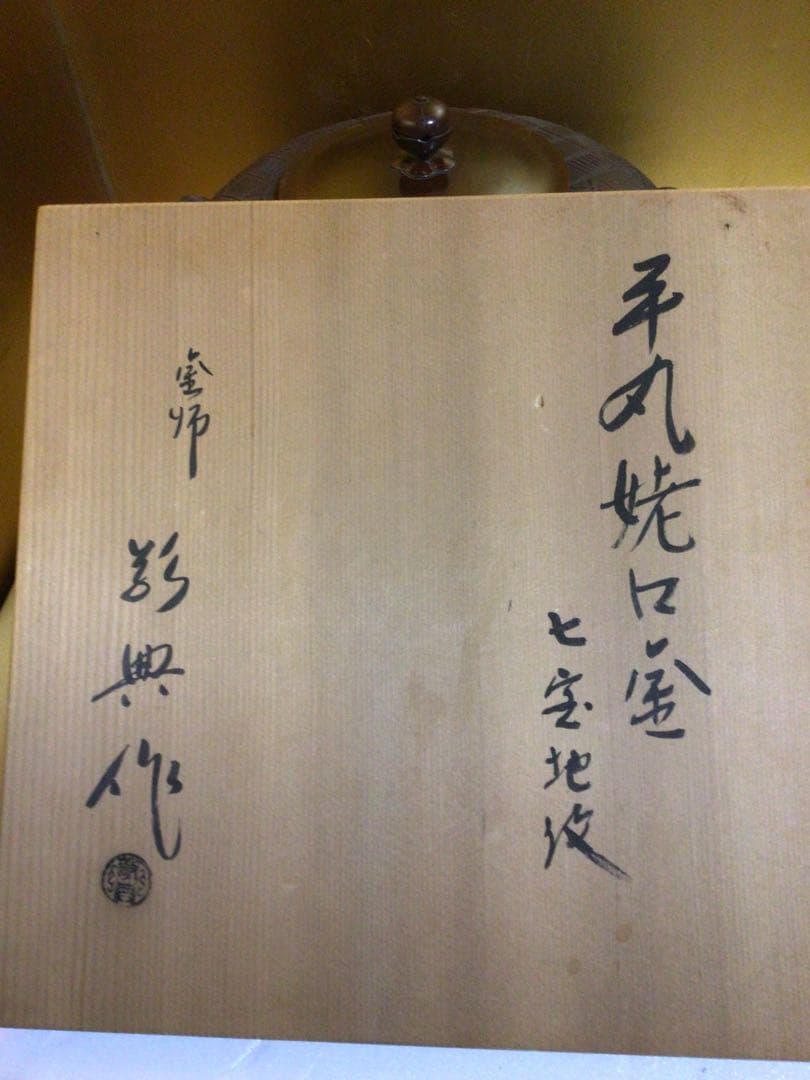 平丸姥口釜
七宝地紋
釜師
敬典作